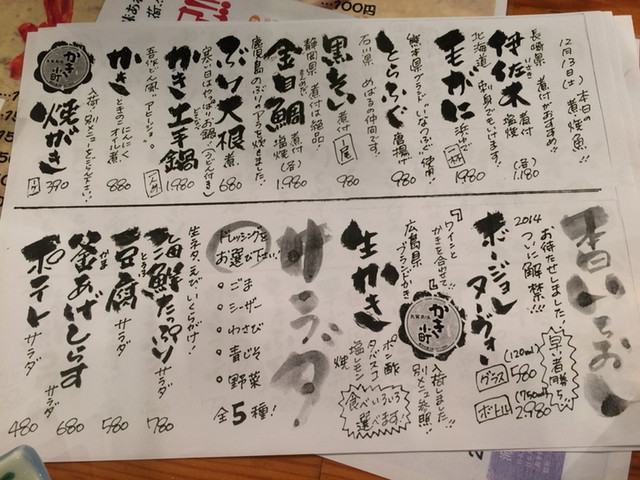 12月13日(土) 本日の煮・焼魚!!
長崎県 煮付がおすすめ!!
伊佐木 煮付 塩焼(各) 1.180
いさき
北海道 刺身でもいけます!
毛がに 浜ゆで 一杯 1980
熊本県ブランド 使用!
とらふぐ 唐揚げ 980
石川県 めばるの仲間です。
黒そい 煮付 1尾 980
静岡県 煮付は絶品
金目鯛 煮付 塩焼(各) 1.980
鹿児島のぶりのアラを炊きました。
ぶり大根 煮 680
寒い日はやっぱりお鍋!(うどん付き)
かき土手鍋 一人前 1.980
アヒージョ。
かき ときのこ にんにくオイル煮 880
入荷!別メニューをごらん下さい!
かき小町
焼がき 1ヶ 390
本日いちおし
お待たせしました!
2014 ついに解禁!!!
ボージョレヌーヴォー
早い者勝ち!!
(120ml)
グラス 580
(750ml)
ボトル 2.980
ワインとかきを合せて!!
かき小町
入荷しました!
別メニュー参照!!
広島県 ブランドかき
生かき ポン酢 タバスコ 塩レモン 焼
食べ方いろいろ選べます!
サラダ
ドレッシングをお選び下さい。
・ごま
・シーザー
・わさび
・青じそ
・野菜
全5種!
生ネタ、えび、いくらがけ!
海鮮たっぷり サラダ 780
豆腐 サラダ 580
とうふ
釜あげしらす サラダ 680
かま
ポテト サラダ 480